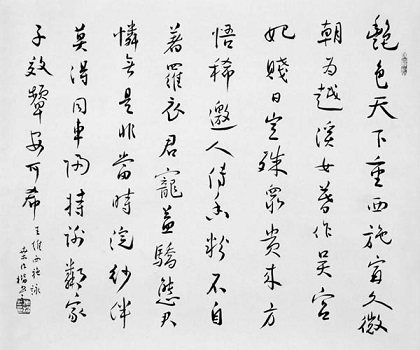 艷色天下重西施寧久微
朝為越溪女暮作吳宮
妃賤日豈殊眾貴來方
悟稀邀人傅香粉不自
著羅衣君寵益驕態君
憐無是非當時浣紗伴
莫得同車歸持謝鄰家
子效顰安可希
王維西施詠